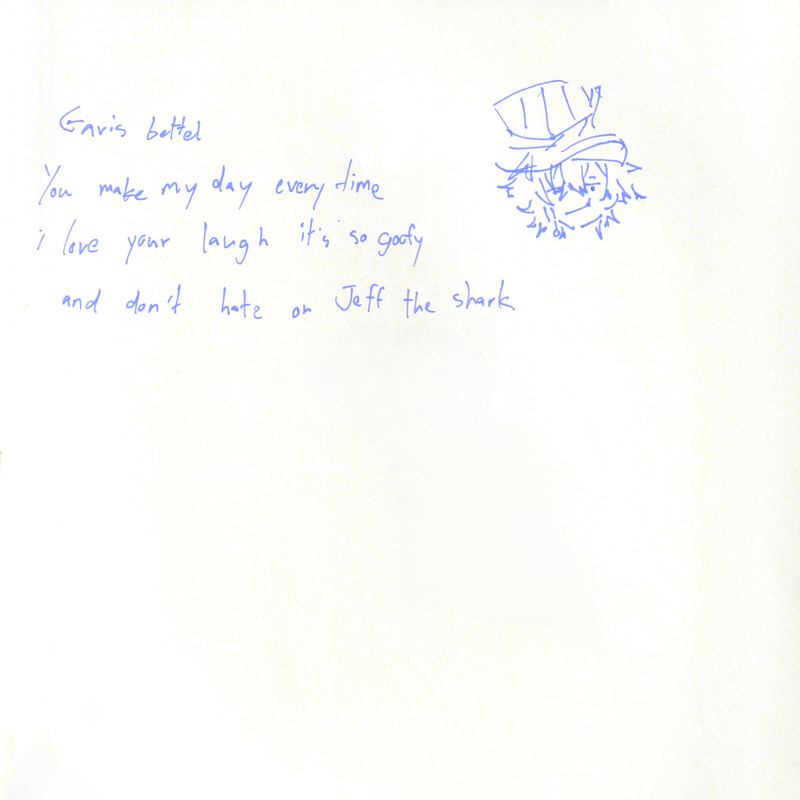 Gavis bettel
You make my day every time
i love your laugh it's so goofy
and don't hate on Jeff the shark